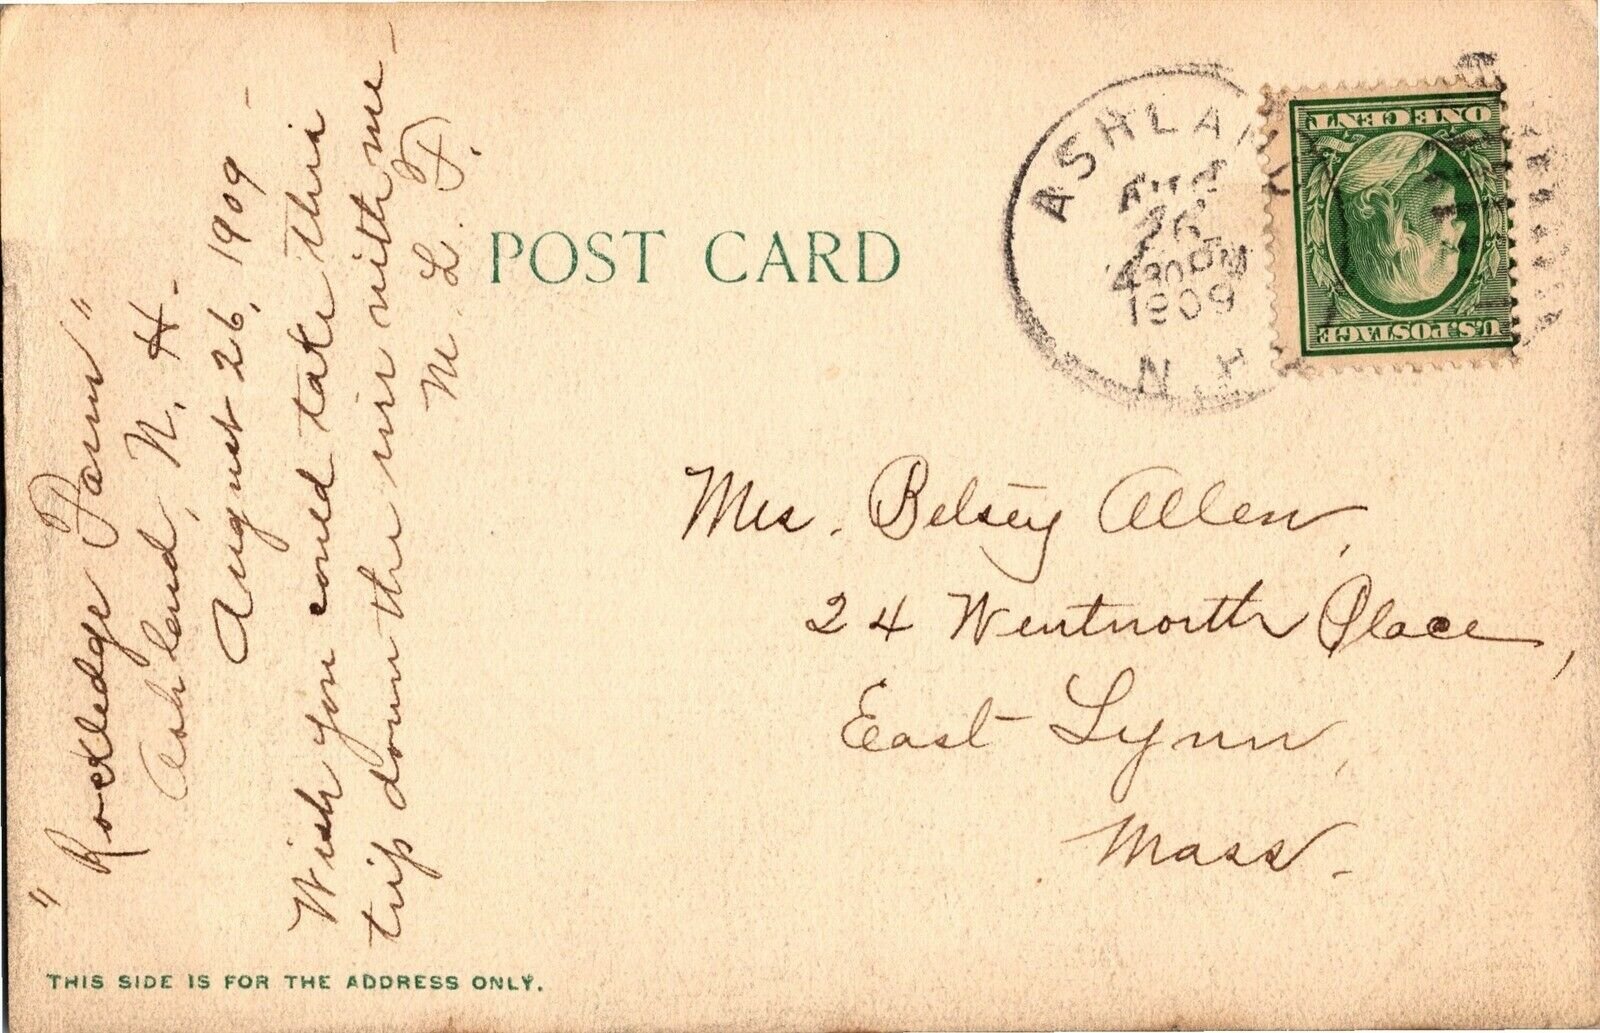 "Rockledge Farm"
Ashland, N. H. -
August 26, 1909 -
Wish you could take this
trip down the river with me -
M. L. F.
POST CARD
ASHLAND
AUG
26
4 30 PM
1909
N.H.
ONE CENT
U.S. POSTAGE
Mrs. Betsey Allen,
24 Wentworth Place,
East Lynn,
Mass.
THIS SIDE IS FOR THE ADDRESS ONLY.